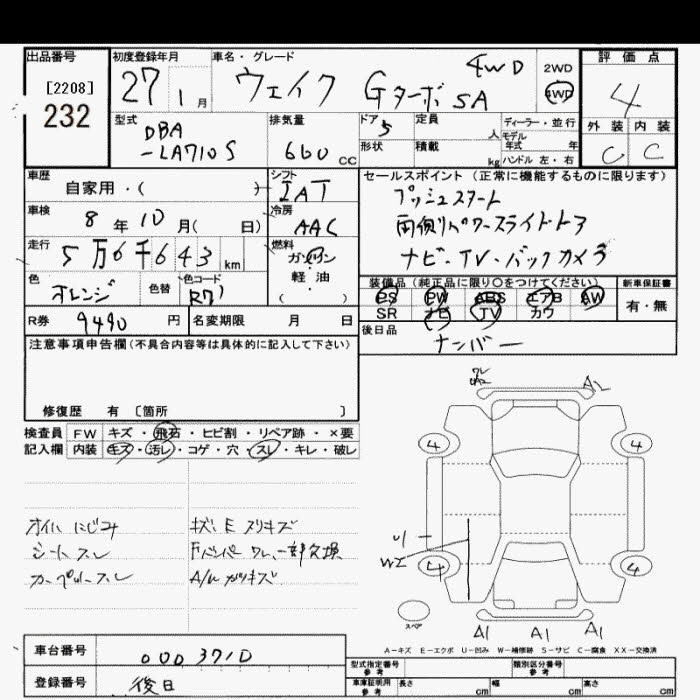 出品番号
[2208]
232
初度登録年月
27 1月
車名・グレード
ウェイク Gターボ SA 4WD
2WD
4WD
評価点
4
外装 内装
C C
型式
DBA
-LA710S
排気量
660 CC
ドア
5
形状
定員 人
積載 kg
ディーラー・並行
モデル
年式 年
ハンドル 左・右
車歴
自家用・( )
シフト
IAT
車検
8年10月( 日)
冷房
AAC
走行
5万6千643 km
燃料
ガソリン
軽・油
( )
色
オレンジ
色替
色コード
R71
セールスポイント(正常に機能するものに限ります)
プッシュスタート
両側リヤパワースライドドア
ナビ・TV・バックカメラ
装備品(純正品に限り〇をつけてください)
PS PW ABS エアB AW
SR ナビ TV カワ
新車保証書
有・無
R券 9490円
名変期限 月 日
後日品
ナンバー
注意事項申告欄(不具合内容等は具体的に記入して下さい)
修復歴 有 〔箇所 〕
検査員
記入欄
FW キズ・飛石・ヒビ割・リペア跡・×要
内装 キズ・汚レ・コゲ・穴・スレ・キレ・破レ
オイルにじみ
シートスレ
カーペットスレ
キズ、E スリキズ
Fバンパー ワレ、一部欠損
A/W ガリキズ
ワレ
A2
4 4
U1
W2
4 4
スペア
A1 A1 A1
A-キズ E-エクボ U-凹み W-補修跡 S-サビ C-腐食 XX-交換済
車台番号
0003710
登録番号
後日
型式指定番号
参考
類別区分番号
参考
車庫証明用
参考
長さ cm
幅 cm
高さ cm